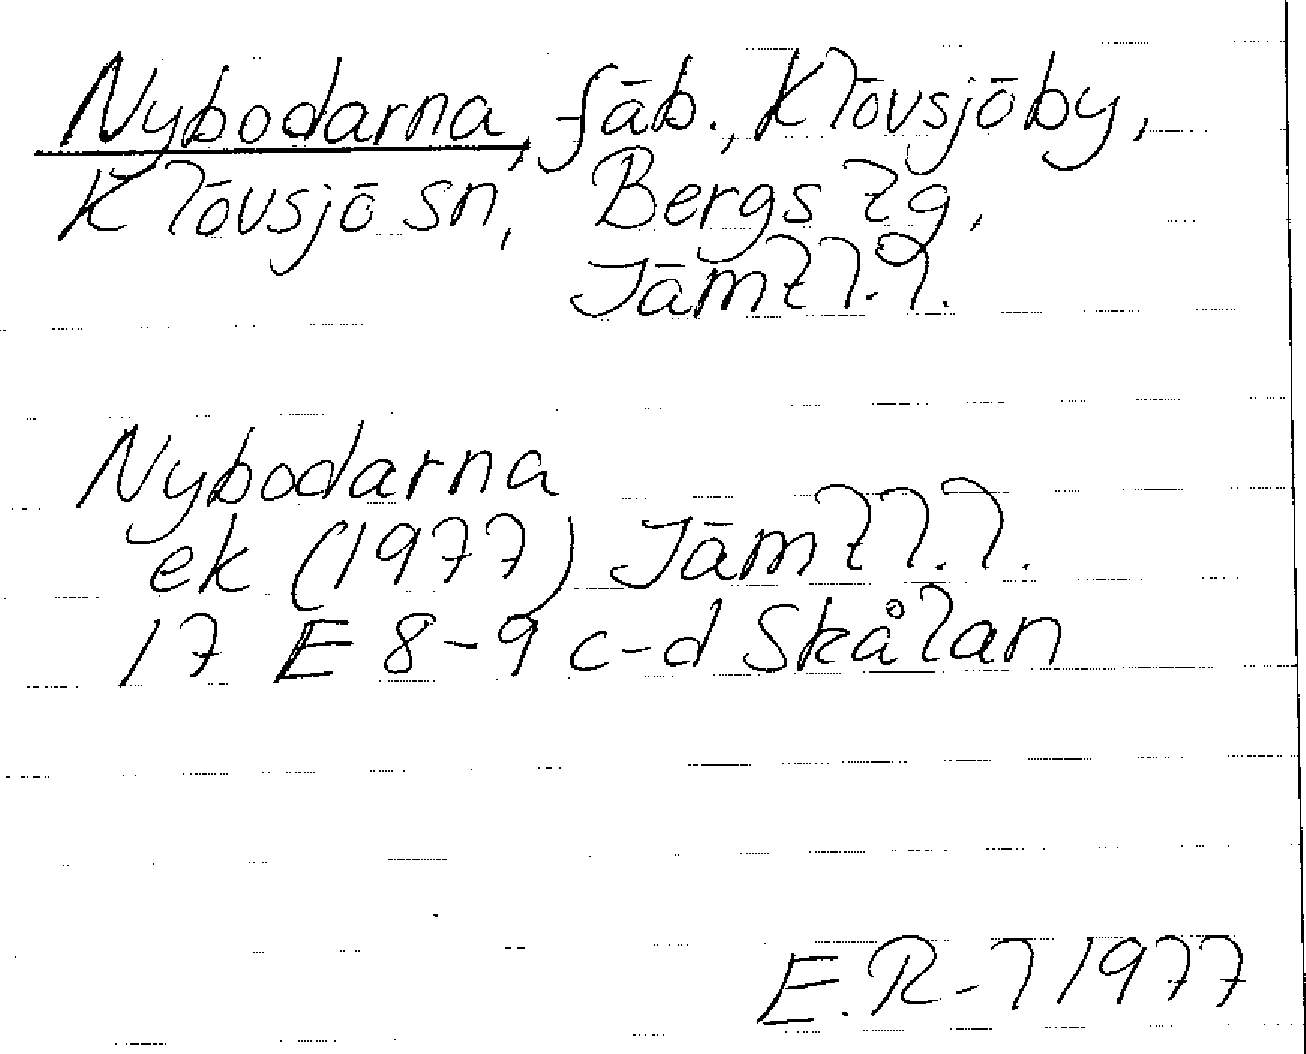 Nybodarna, fäb., Klövsjöby,
Klövsjö sn, Bergs tg,
Jämtl. l.
Nybodarna
ek (1977) Jämtl. l.
17 E 8-9 c-d Skålan
E. R-l 1977